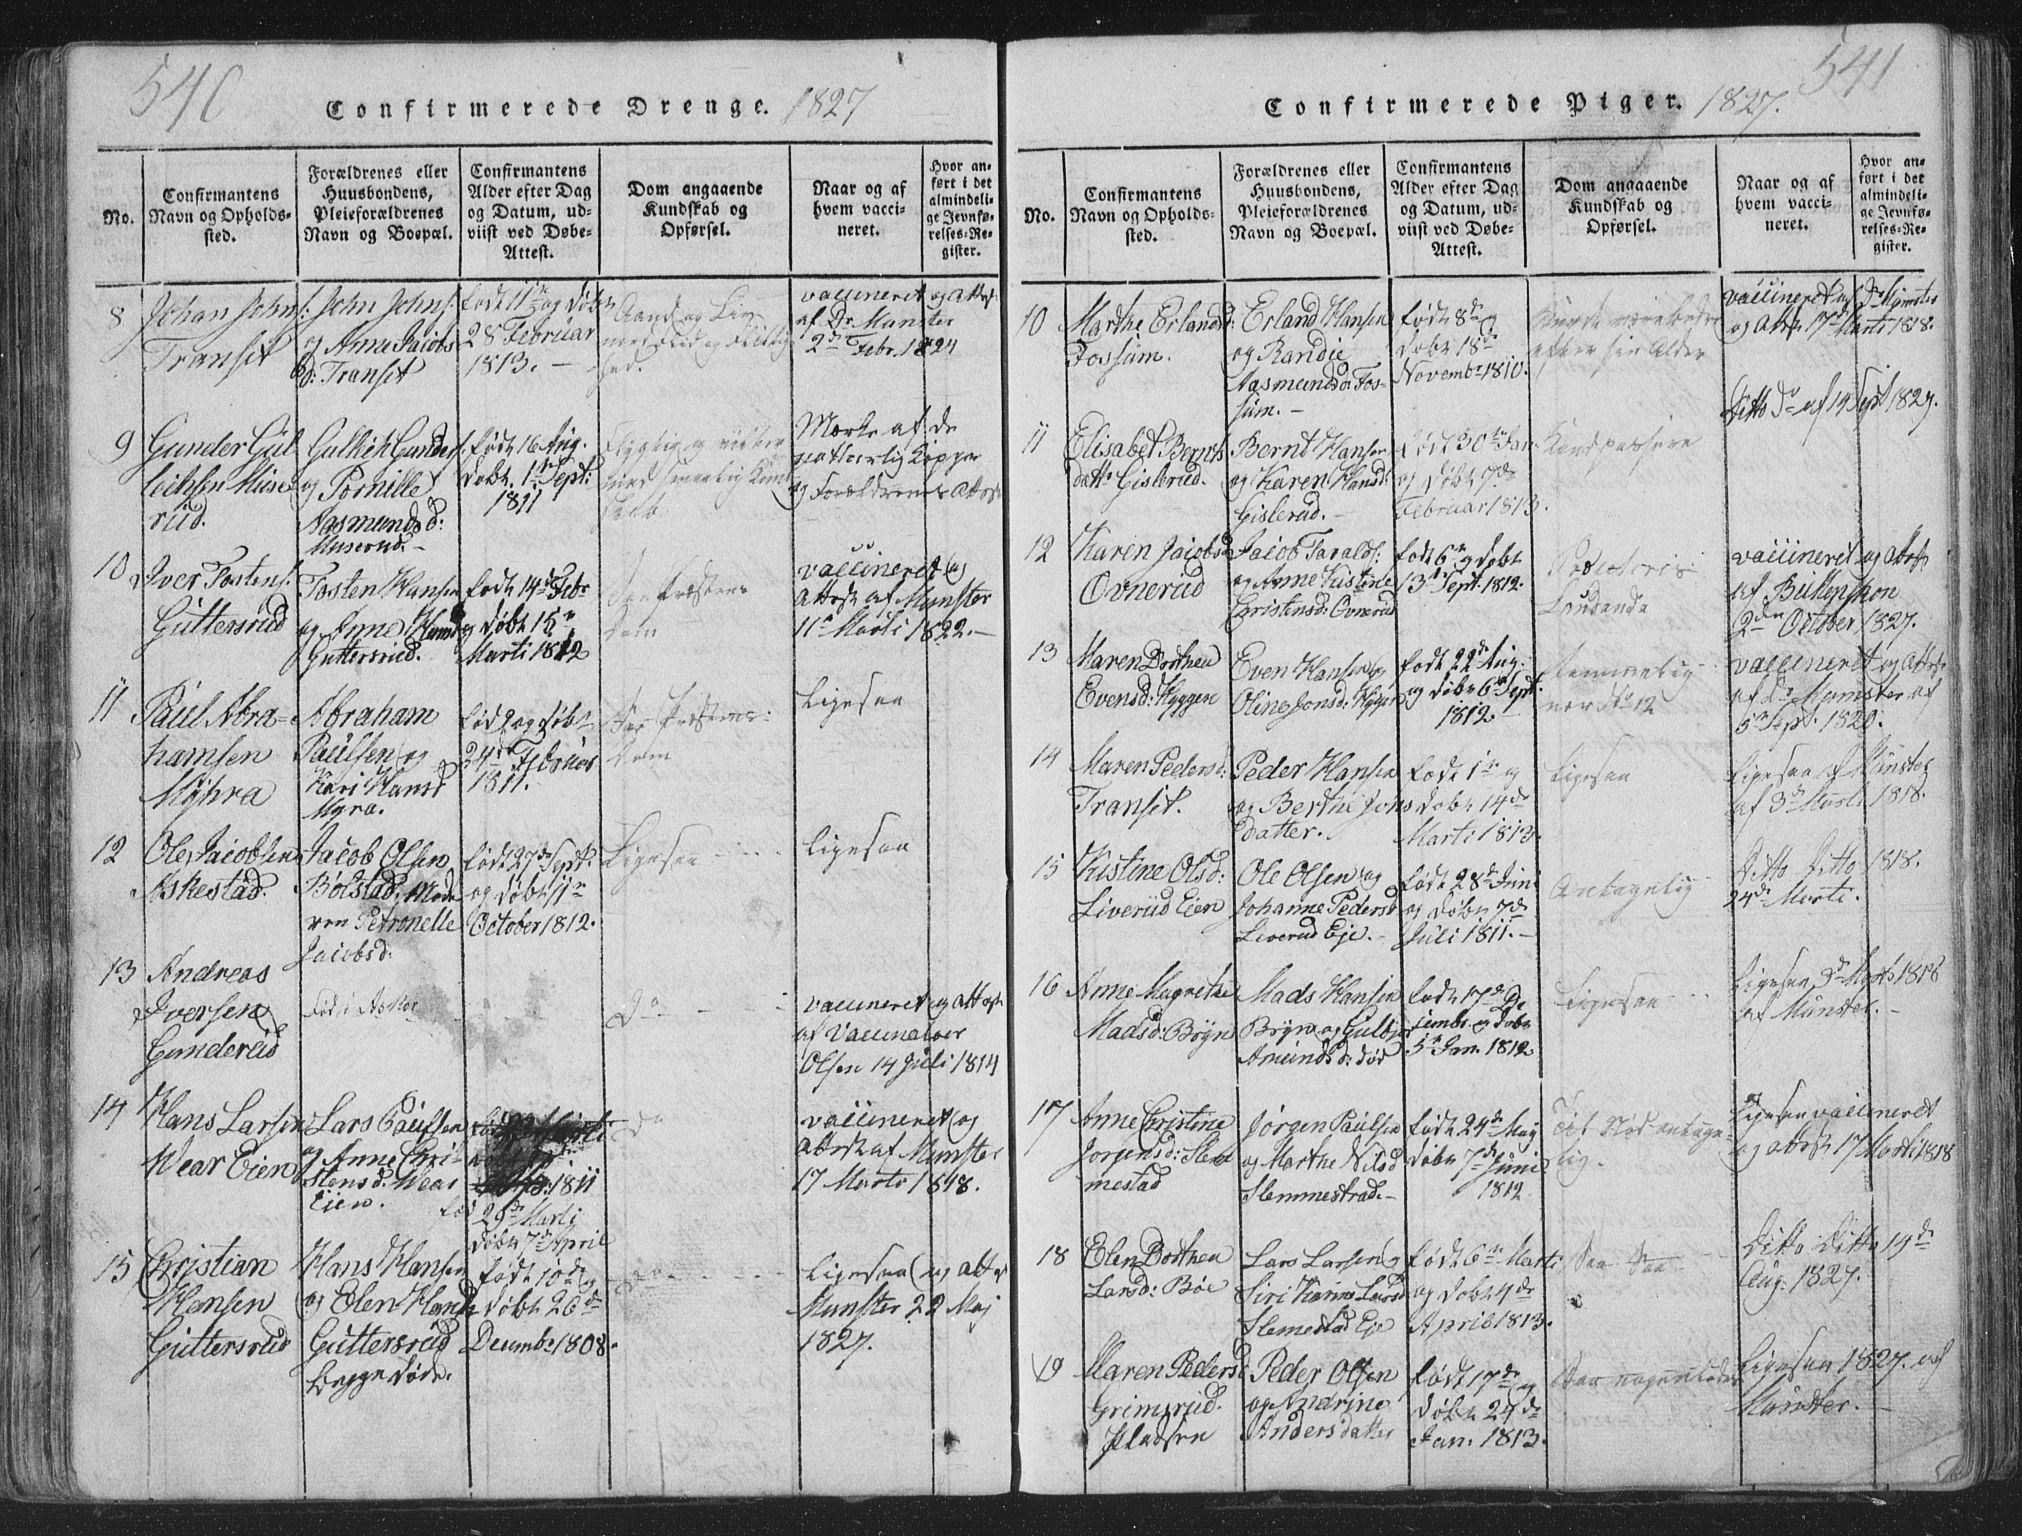 540
Confirmerede Drenge. 1827
No.
Confirmantens Navn og Opholds-sted.
Forældrenes eller Huusbondens, Pleieforældrenes Navn og Boepæl.
Confirmantens Alder efter Dag og Datum, ud-viist ved Døbe-Attest.
Dom angaaende Kundskab og Opførsel.
Naar og af hvem vacci-neret.
Hvor an-ført i det almindeli-ge Jevnfø-relses-Re-gister.
8
Johan Johns:
Transet
John Johns:
og Anne Jacobs
d: Transet
født 11te og døbt
28 Februar
1813. —
vaccineret og Attest
af Dr Munster
2de Febr. 1824
9
Gunder Gul
leichsen Muse
rud.
Gullich Gunders:
og Pernille
Aasmundsd:
Muserud. —
født 16 Aug.
døbt 1te Sept:
1811
Mærke af de
naturlig Kopper
og Forældrenes Attest
10
Iver Tostens:
Guttersrud
Tosten Hansen
og Anne Hansd
Guttersrud.
født 14de Febr
og døbt 15de
Marti 1812
vaccineret og
Attest af Munster
11te Marti 1822. —
11
Paul Abra-
hamsen
Myhra
Abraham
Paulsen og
Kari Hansd
Myra.
født 2 og døbt
24de Februar
1811.
Ligesaa
12
Ole Jacobsen
Askestad.
Jacob Olsen
Bølstad, Mode
ren Petronelle
Jacobsd:
født 27de Sept.
og døbt 11te
October 1812.
Ligesaa
Ligesaa
13
Andreas
Iversen
Gunderud
Født i Asker
Do
vaccineret og Attest
af Vaccinateur
Olsen 14 Juli 1814
14
Hans Larsen
Wear Eien
Lars Paulsen
og Anne Chri-
stensd: Wear
Eien.
1811
født 29de Marti
døbt 7de April
do
vaccineret og
Attest af Munster
17 Marts 1818.
15
Christian
Hansen
Guttersrud
Hans Hansen
og Elen Hansd
Guttersrud
begge døde.
født 10de og
døbt 26de
Decembr 1808.
do
Ligesaa og Attest
Munster 22 Maj
1827.
541
Confirmerede Piger. 1827.
No.
Confirmantens Navn og Opholds-sted.
Forældrenes eller Huusbondens, Pleieforældrenes Navn og Boepæl.
Confirmantens Alder efter Dag og Datum, ud-viist ved Døbe-Attest.
Dom angaaende Kundskab og Opførsel.
Naar og af hvem vacci-neret.
Hvor an-ført i det almindeli-ge Jevnfø-relses-Re-gister.
10
Marthe Erlandsd:
Fossum.
Erland Hansen
og Randie
Aasmundsd: Fos-
sum. —
født 8de og
døbt 18de
Novembr 1810.
efter sin Alder
vaccineret af Dr Munster
og Attest 17de Marti 1818.
11
Elisabet Bernts
datter Gislerud.
Bernt Hansen
og Karen Hansd:
Gislerud. —
født 30te Jan
og døbt 7de
Februar 1813.
Kand passere
Ditto Do af 14 Sept 1827.
12
Karen Jacobsd
Ovnerud
Jacob Taralds:
og Anne Kistine
Christensd: Ovnerud
født 6te og døbt
13de Sept. 1812.
vaccineret og Attest
af
2den October 1827.
13
Maren Dorthea
Evensd: Hyggen
Even Hansen og
Oline Jonsd: Hyggen
født 22de Aug.
og døbt 6te Sept.
1812. —
No 12
vaccineret og Attest
af Dr Munster af
5te Sept. 1820.
14
Maren Pedersd:
Transet.
Peder Hansen
og Berthe Jons
datter.
født 1te og
døbt 14de
Marti 1813.
Ligesaa
Ligesaa af Munster
af 3de Marti 1818.
15
Kistine Olsd:
Liverud Eien
Ole Olsen og
Johanne Pedersd
Liverud Eje. —
født 28de Juni
og døbt 7de
Juli 1811. —
Antagelig
Ditto Ditto 1818.
24de Marti.
16
Anne Magrethe
Madsd: Bryn
Mads Hansen
Bryn og Gulbjør
Amundsd: død
født 17de De
cembr og døbt
5te Jan. 1812
Ligesaa
Ligesaa 3de Marts 1818
af Munster. —
17
Anne Christine
Jorgensd: Slem
mestad
Jørgen Paulsen
og Marthe Nilsd
Slemmestad. —
født 24de May
døbt 7de Juni
1812
Til Nød antage-
lig.
Ligesaa vaccineret
og Attest 17 Marti 1818
18
Elen Dorthea
Larsd: Bøe
Lars Larsen og
Siri Karine Larsd
Slemestad Eje
født 6te Marti
og døbt 4de
April 1813.
Saa Saa
Ditto Ditto 19de
Aug. 1827.
19
Maren Pedersd
Grimsrud.
Pladsen
Peder Olsen
og Andrine
Andersdatter
født 17de og
døbt 24de
Jan. 1813.
Ligesaa 1827. af
Munster. —